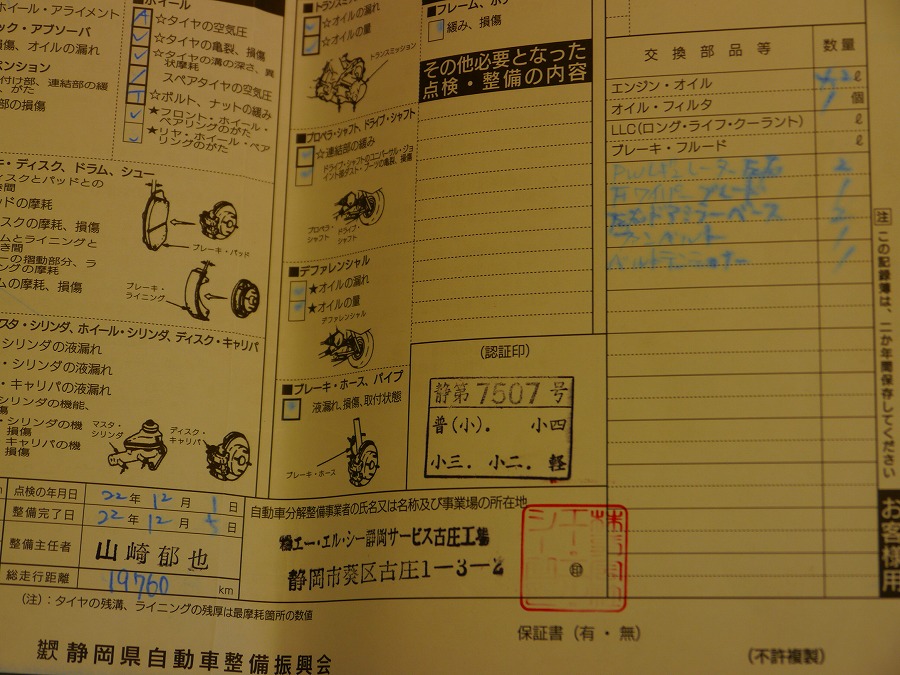 ホイール・アライメント
ック・アブソーバ
損傷、オイルの漏れ
ペンション
付け部、連結部の緩
、がた
部の損傷
■ホイール
☆タイヤの空気圧
☆タイヤの亀裂、損傷
☆タイヤの溝の深さ、異
状摩耗
スペアタイヤの空気圧
☆ボルト、ナットの緩み
★フロント・ホイール・
ベアリングのがた
★リヤ・ホイール・ベア
リングのがた
キ・ディスク、ドラム、シュー
ィスクとパッドとの
き間
ッドの摩耗
スクの摩耗、損傷
ムとライニングと
き間
ーの摺動部分、ラ
ングの摩耗
ムの摩耗、損傷
ブレーキ・パッド
ブレーキ・
ライニング
マスタ・シリンダ、ホイール・シリンダ、ディスク・キャリパ
・シリンダの液漏れ
・シリンダの液漏れ
・キャリパの液漏れ
シリンダの機能、
傷
・シリンダの機
損傷
キャリパの機
損傷
マスタ・
シリンダ
ディスク・
キャリパ
■トランスミ
☆オイルの漏れ
☆オイルの量
トランスミッション
■プロペラ・シャフト、ドライブ・シャフト
☆連結部の緩み
ドライブ・シャフトのユニバーサル・ジョ
イント部ダスト・ブーツの亀裂、損傷
プロペラ・
シャフト
ドライブ・
シャフト
■デファレンシャル
★オイルの漏れ
★オイルの量
デファレンシャル
■ブレーキ・ホース、パイプ
液漏れ、損傷、取付状態
ブレーキ・ホース
■フレーム、ボデ
緩み、損傷
その他必要となった
点検・整備の内容
交換部品等 数量
エンジン・オイル 4.2 ℓ
オイル・フィルタ 1 個
LLC(ロング・ライフ・クーラント) ℓ
ブレーキ・フルード ℓ
P/Wレギュレーター 左右 2
ワイパーブレード 1
左右ドアミラーベース 2
ファンベルト 1
ベルトテンショナー 1
注 この記録簿は、二か年間保存してください
お客様用
(認証印)
静第7507号
普(小). 小四
小三. 小二. 軽
点検の年月日 22年12月1日
整備完了日 22年12月5日
整備主任者 山崎郁也
総走行距離 19760 km
自動車分解整備事業者の氏名又は名称及び事業場の所在地
㈱エー・エル・シー静岡サービス古庄工場
静岡市葵区古庄1-3-2
印
(注):タイヤの残溝、ライニングの残厚は最摩耗箇所の数値
保証書(有・無)
社団法人 静岡県自動車整備振興会
(不許複製)